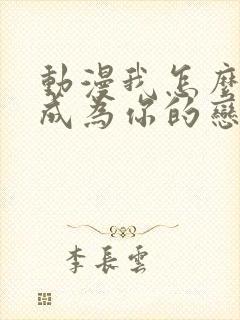 動漫我怎麼
成為你的戀
李長雲